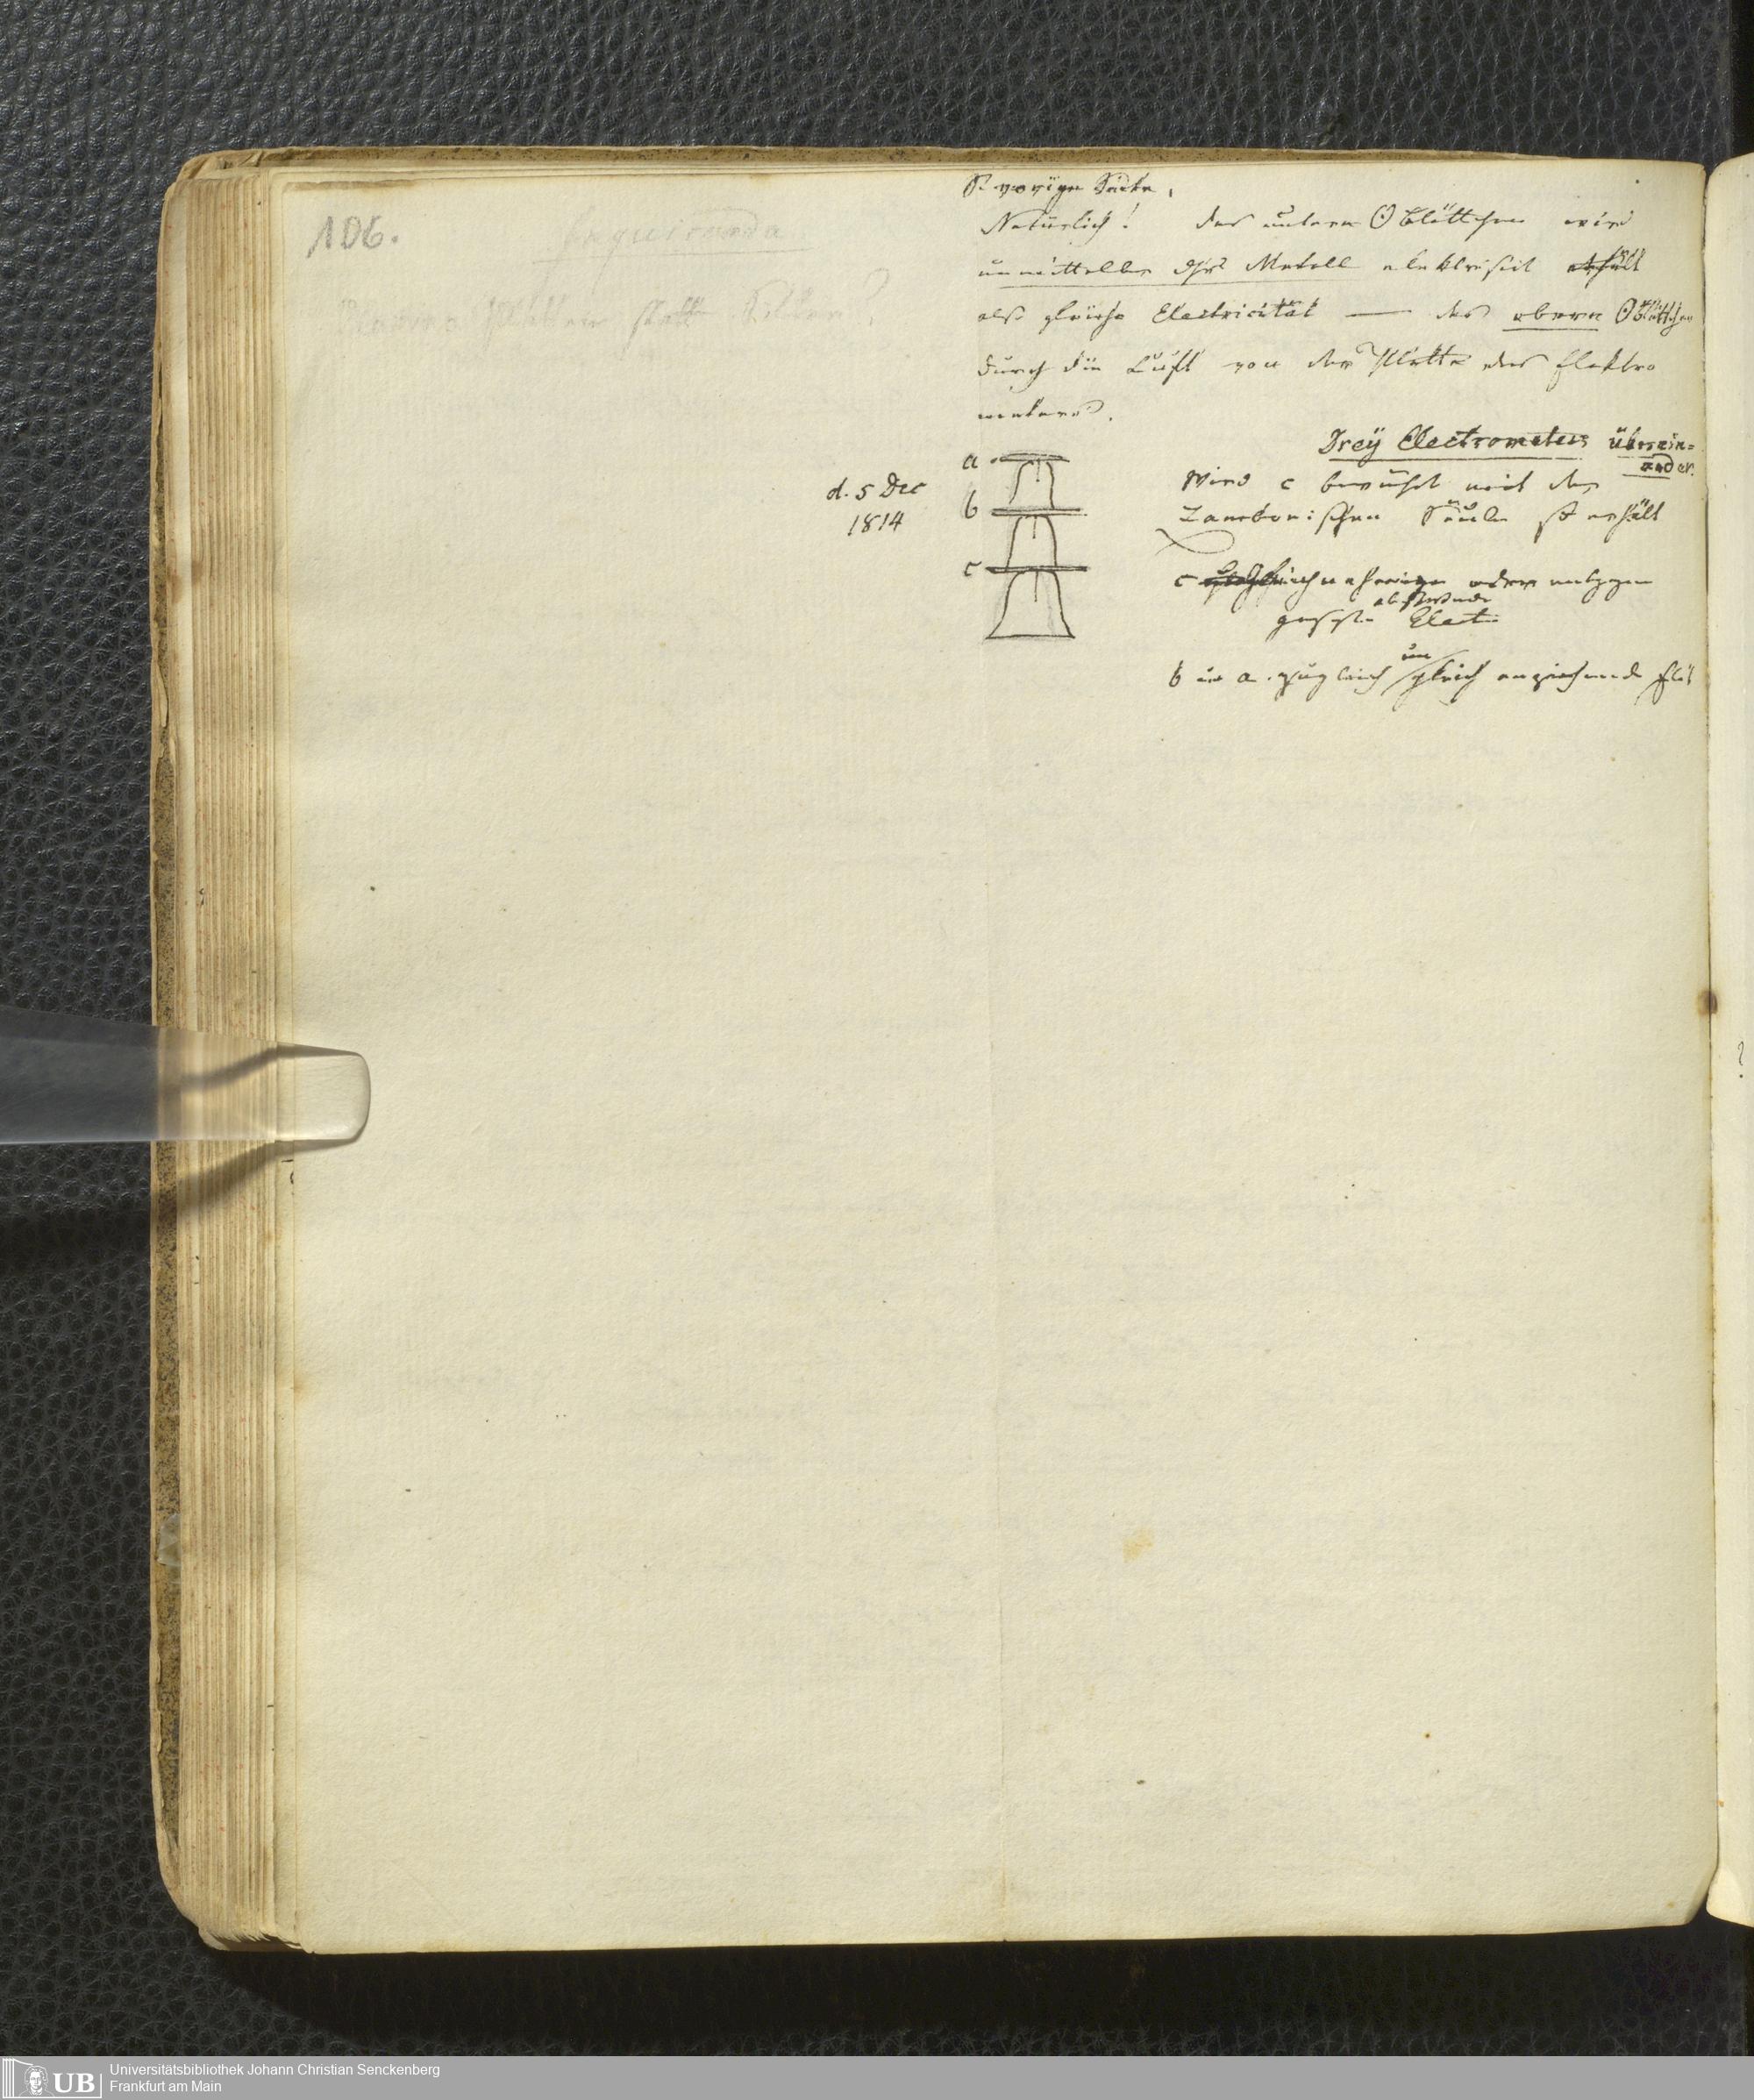 106.
Inquirenda
statt
S. vorige Seite.
Natürlich! das untere Oblättchen wird
unmittelbar dch's Metall elektrisirt erhält
also gleiche Electricität — das obere Oblättchen
durch die Luft von der Platte des Elektro
meters.
Drey Electrometer überein=
ander.
d. 5 Dec
1814
a
b
c
Wird c berührt mit der
Zambonischen Säule so erhält
c oder entgegen
gesezte abstossende Elect.
b u a zugleich un gleich anziehende Elet
Universitätsbibliothek Johann Christian Senckenberg
Frankfurt am Main
UB